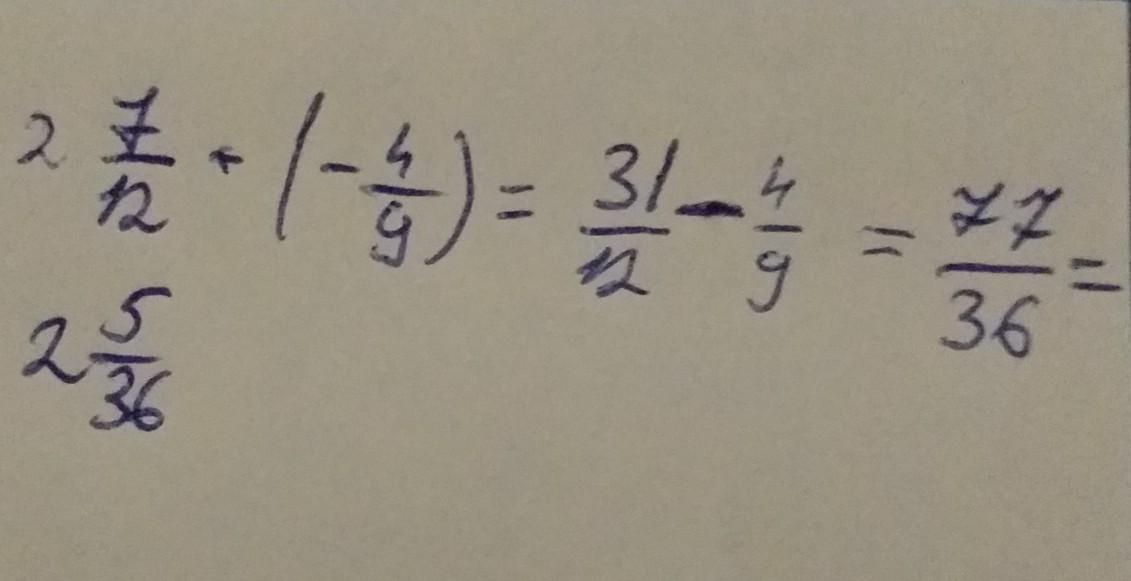 2 7/12 + (-4/9) = 31/12 - 4/9 = 77/36 =
2 5/36